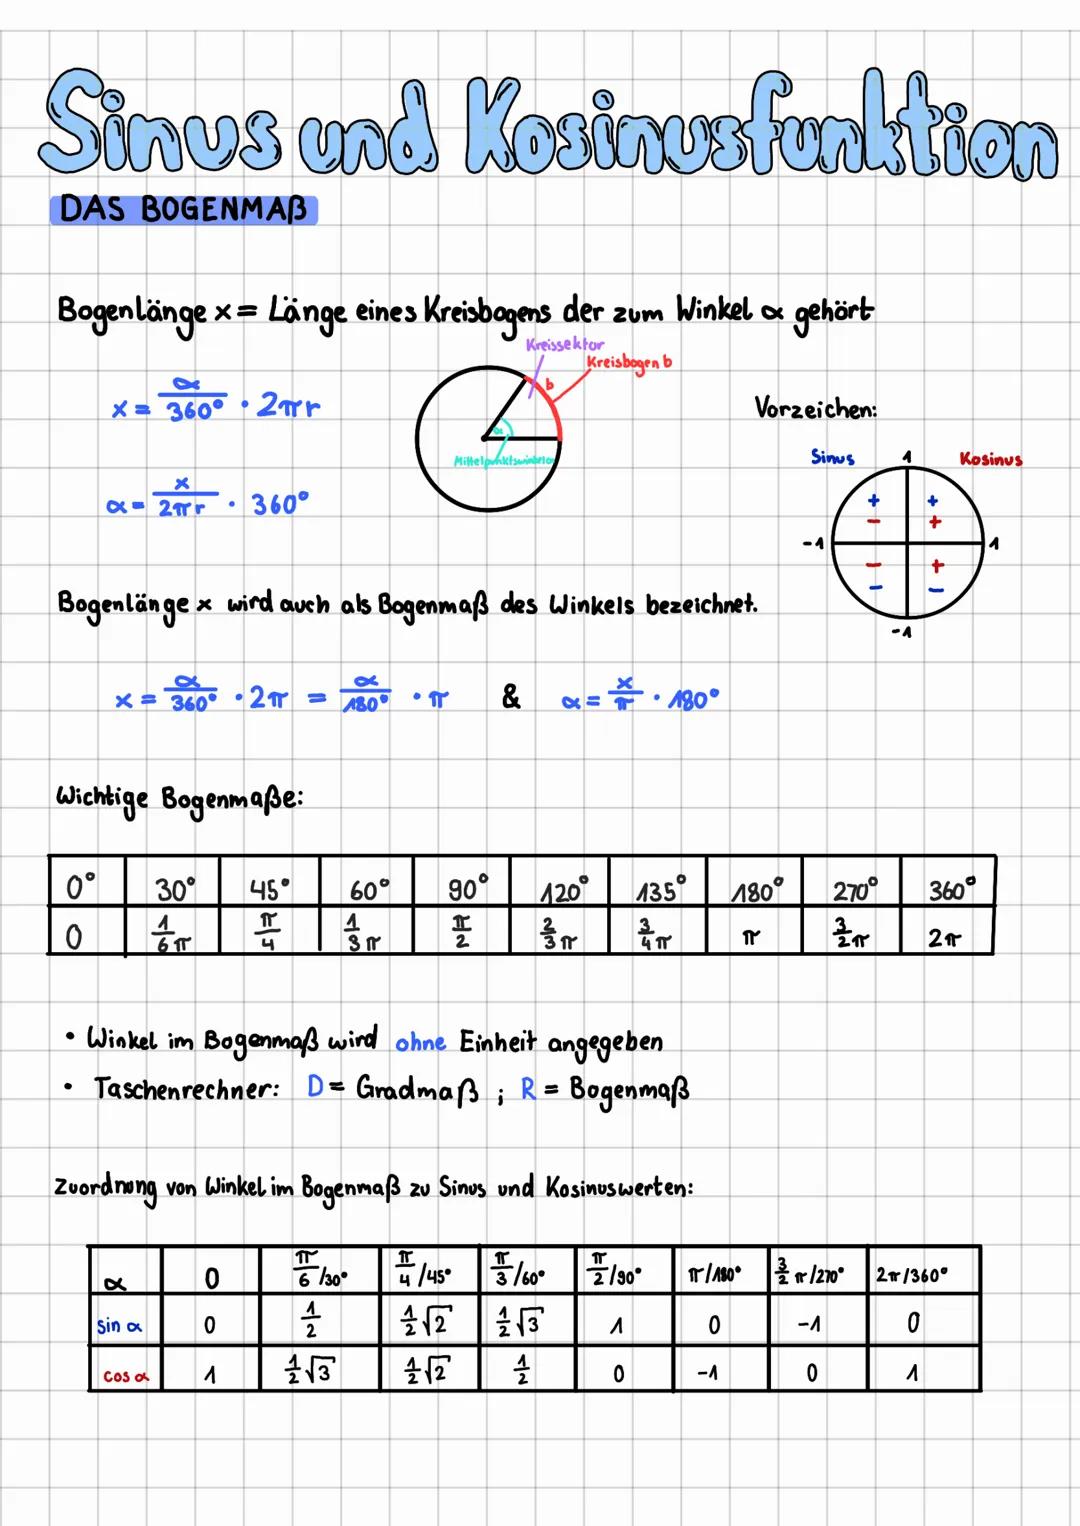 Sinus und Kosinusfunktion
DAS BOGENMAß
Bogenlänge x = Länge eines Kreisbogens der zum Winkel α gehört
Kreissektor
Kreisbogen b
b
α
Mittelpunktswinkel α
x = α/360° · 2πr
α = x/2πr · 360°
Vorzeichen:
Sinus 1 Kosinus
+ +
− +
-1 1
− +
− −
-1
Bogenlänge x wird auch als Bogenmaß des Winkels bezeichnet.
x = α/360° · 2π = α/180° · π & α = x/π · 180°
Wichtige Bogenmaße:
0° 30° 45° 60° 90° 120° 135° 180° 270° 360°
0 1/6 π π/4 1/3 π π/2 2/3 π 3/4 π π 3/2 π 2π
• Winkel im Bogenmaß wird ohne Einheit angegeben
• Taschenrechner: D = Gradmaß ; R = Bogenmaß
Zuordnung von Winkel im Bogenmaß zu Sinus und Kosinuswerten:
α 0 π/6 /30° π/4 /45° π/3 /60° π/2 /90° π/180° 3/2 π/270° 2π/360°
sin α 0 1/2 1/2 √2 1/2 √3 1 0 -1 0
cos α 1 1/2 √3 1/2 √2 1/2 0 -1 0 1